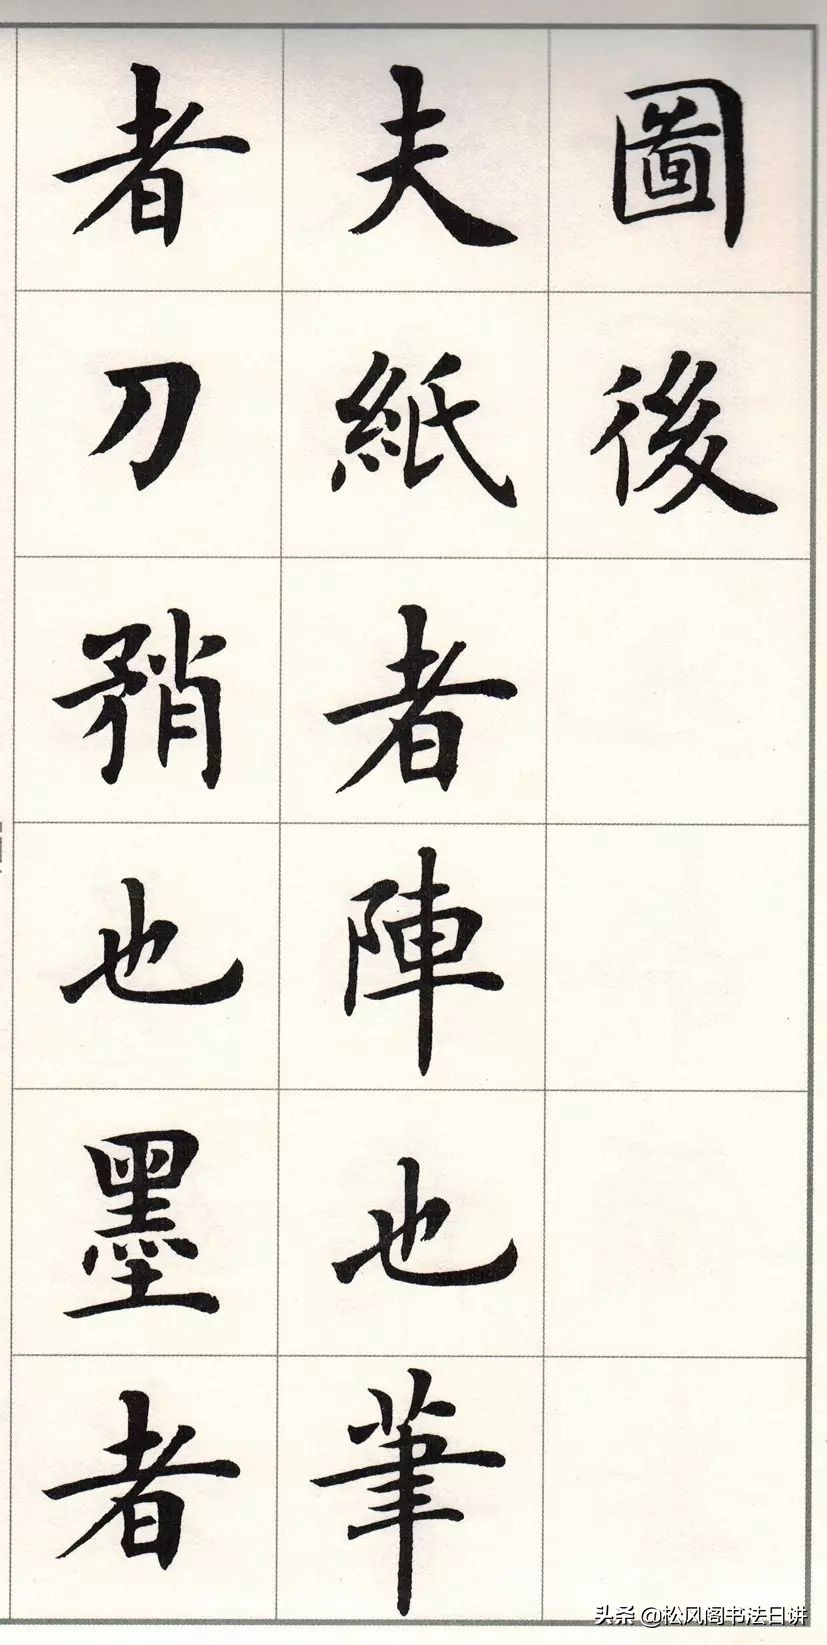 圖後
夫紙者陣也筆
者刀矟也墨者
头条 @松风阁书法日讲